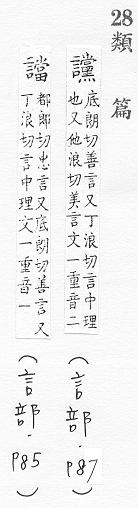 28類篇
讜 底朗切善言又丁浪切言中理
也又他浪切美言文一重音二
（言部．P87）
譡 都郎切忠言又底朗切善言又
丁浪切言中理文一重音一
（言部．P85）